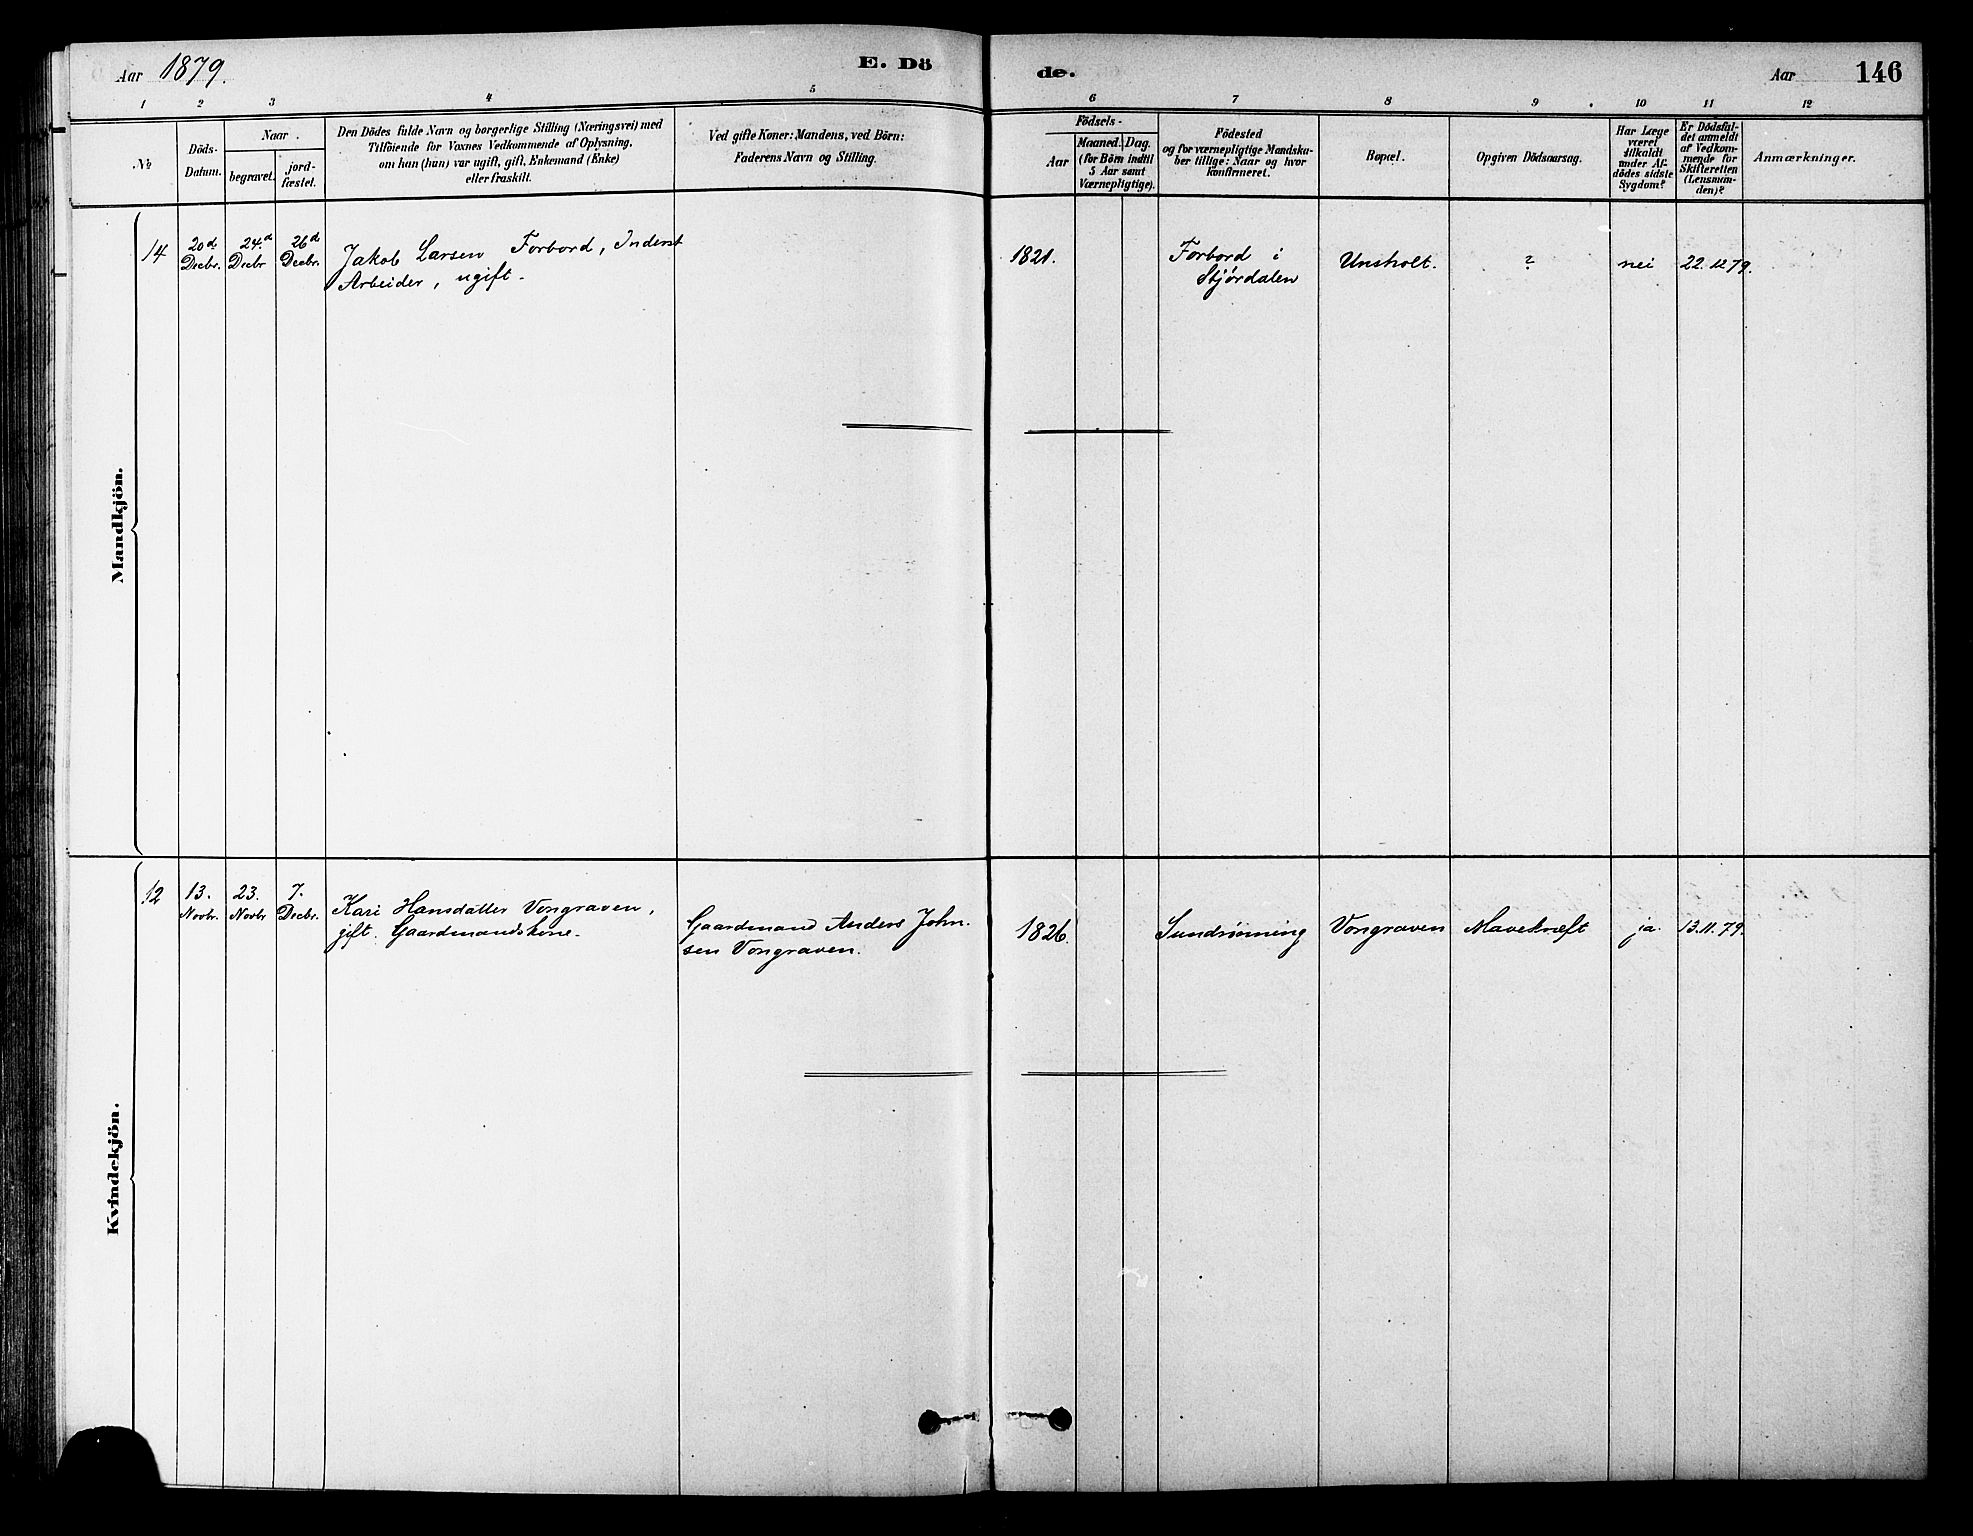 Aar 1879.
E. Dö
de.
Aar
146
1 2 3 4 5 6 7 8 9 10 11 12
№
Döds-
Datum.
Naar
begravet.
jord-
fæstet.
Den Dödes fulde Navn og borgerlige Stilling (Næringsvei) med
Tilföiende for Voxnes Vedkommende af Oplysning,
om han (hun) var ugift, gift, Enkemand (Enke)
eller fraskilt.
Ved gifte Koner: Mandens, ved Börn:
Faderens Navn og Stilling.
Födsels-
Aar
Maaned. Dag.
(for Börn indtil
5 Aar samt
Værnepligtige).
Födested
og for værnepligtige Mandska-
ber tillige: Naar og hvor
konfirmeret.
Bopæl.
Opgiven Dödsaarsag.
Har Læge
været
tilkaldt
under Af-
dödes sidste
Sygdom?
Er Dödsfal-
det anmeldt
af Vedkom-
mende for
Skifteretten
(Lensman-
den)?
Anmærkninger.
Mandkjön.
14
20d
Decbr.
24.d
Decbr
26d
Decbr.
Jakob Larsen Forbord, Inderst
Arbeider, ugift.
1821.
Forbord i
Stjørdalen
Unsholt.
?
nei
22.12.79.
Kvindekjön.
12
13.
Novbr.
23.
Novbr
7.
Decbr.
Kari Hansdatter Vongraven,
gift. Gaardmandskone.
Gaardmand Anders John-
sen Vongraven.
1826.
Sundrønning
Vongraven
Mavekræft
ja.
13.11.79.